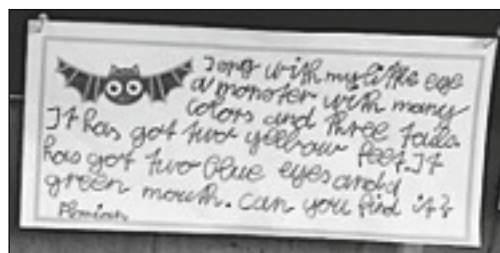 I spy with my little eye
a monster with many
colors and three tails.
It has got two yellow feet. It
has got two blue eyes and a
green mouth. Can you find it?